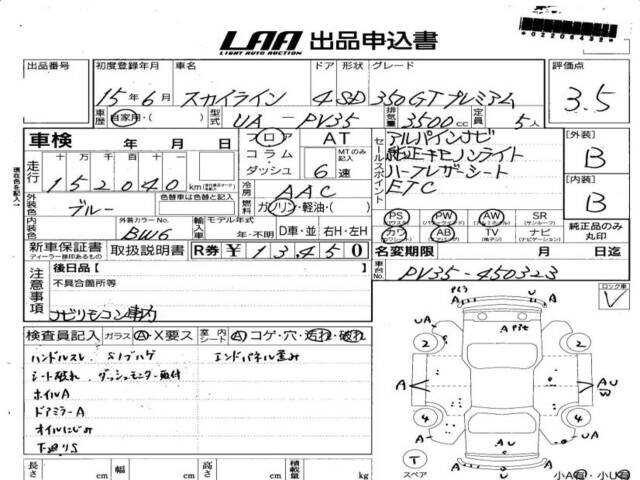 LAA 出品申込書
LIGHT AUTO AUCTION
出品番号 初度登録年月 車名 ドア 形状 グレード 評価点
15年6月 スカイライン 4 SD 350GTプレミアム 3.5
車歴 自家用・( ) 型式 UA-PV35 排気量 3500cc 定員 5人
車検 年 月 日 フロア コラム・ダッシュ AT MTのみ記入 6速
セールスポイント アルパインナビ
純正キセノンライト
ハーフレザーシート
ETC
[外装] B
[内装] B
現在色を記入
走行 十万千百十一 152040km
冷房 AAC
外装色 ブルー 色替車は色替と記入 燃料 ガソリン・軽油・( )
内装色 外装カラーNo. BW6 輸入車 モデル年式 年・不明 D車・並 右H・左H
PS PW AW SR(サンルーフ)
カワ AB TV ナビ(ナビゲーション) 純正品のみ丸印
新車保証書 取扱説明書 R券 ¥13,450
ディーラー様印あるもの
名変期限 月 日迄
車台No. PV35-450323
注意事項 後日品[ ]
不具合箇所等
ナビリモコン車内
ロック車
検査員記入 ガラス A・X要ス 室内シート A コゲ・穴・汚れ・破れ
ハンドルスレ Sノブハゲ エンドパネル歪み
シート破れ ダッシュモニター取付
ホイルA
ドアミラーA
オイルにじみ
下廻りS
長さ cm 幅 cm 高さ cm 積載量 kg
UA A UA
2 2
A A AU
W
4 4
A U A
T スペア
小A有・小U有